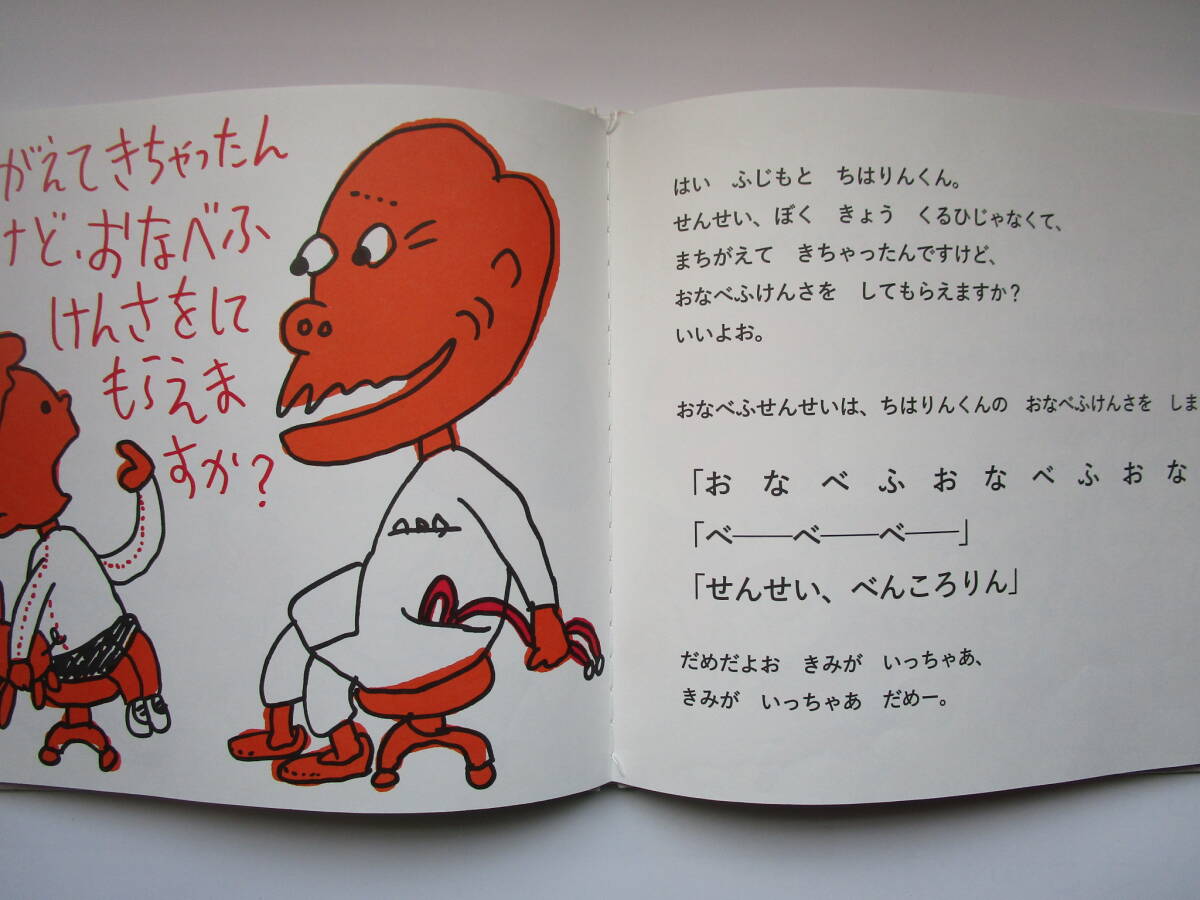 がえてきちゃったん
けど、おなべふ
けんさをして
もらえま
すか?
はい ふじもと ちはりんくん。
せんせい、ぼく きょう くるひじゃなくて、
まちがえて きちゃったんですけど、
おなべふけんさを してもらえますか?
いいよお。
おなべふせんせいは、ちはりんくんの おなべふけんさを しま
「お な べ ふ お な べ ふ お な
「べ──べ──べ──」
「せんせい、べんころりん」
だめだよお きみが いっちゃあ、
きみが いっちゃあ だめー。